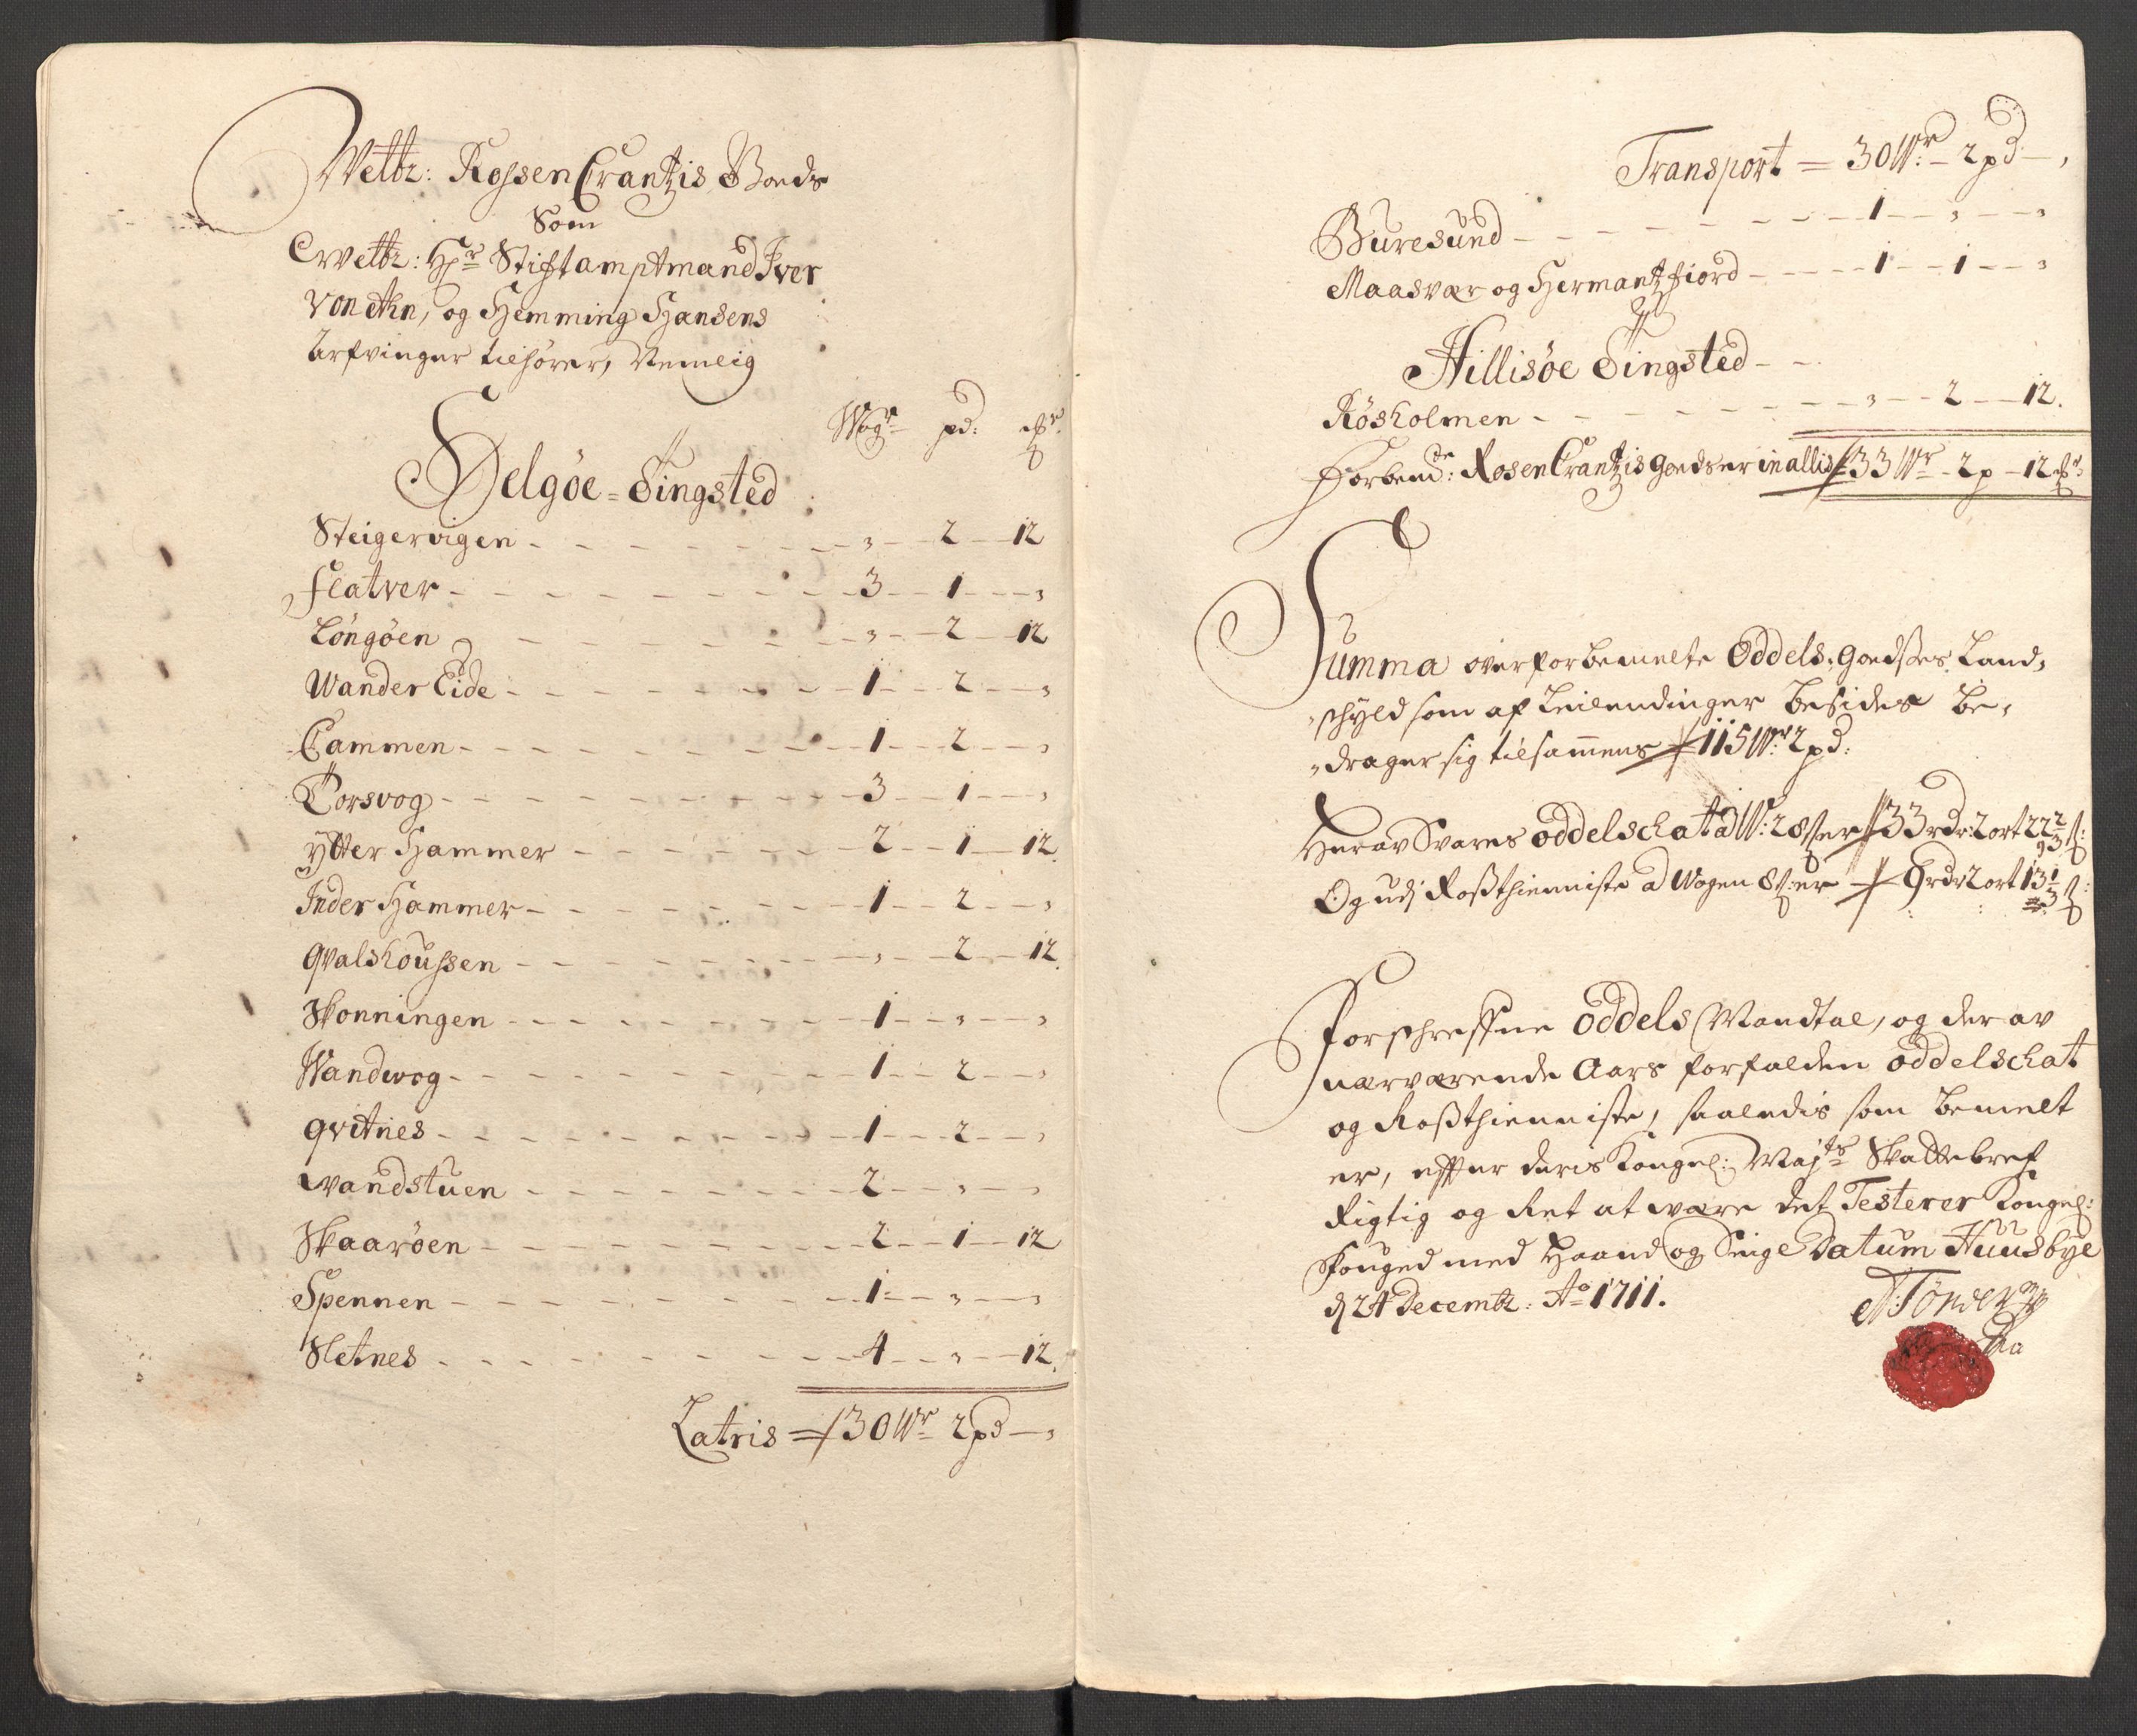 Velbr: RossenCrantzis Goeds
Som
Ervelbr: Hr Stiftamptmand Iver
von Ahn, og Hemming Hansens
Arfvinger tilhører, Nemlig
Wogr pd: ℔r
Helgøe-Tingsted
Steigervigen - , - 2 - 12
Flatver - 3 - 1 - ,
Løngøen - , - 2 - 12
Wander Eide - 1 - 2 - ,
Cammen - 1 - 2 - ,
Torsvog - 3 - 1 - ,
ytter Hammer - 2 - 1 - 12
Inder Hammer - 1 - 2 - ,
Qvalshoussen - , - 2 - 12
Skonningen - 1 - , - ,
Wandwog - 1 - 2 - ,
Qvitnes - 1 - 2 - ,
wandstuen - 2 - , - ,
Skaarøen - 2 - 1 - 12
Spennen - 1 - , - ,
Sletnes - 4 - , - 12
Latris = 30 Wr 2 pd - ,
Transport = 30 Wr - 2 pd - ,
Buresund - 1 - , - ,
Maasvær og Hermantzfiord - 1 - 1 - ,
Hillisøe Tingsted -
Røsholmen - , - 2 - 12.
Forbemde: RosenCrantzis Goeds er in allis 33 Wr - 2 p - 12 ℔r
Summa over forbemelte Oddels-Goedses Land-
schyld som af Leilendinger besides be-
drager sig tilsammens 115 Wr 2 pd:
Herav Svares oddelschat ad W: 28 s er 33 rdr: 2 ort 22 2/3 s:
Og udj Rosthienniste a Wogen 8 s: er 9 rdr 2 ort 13 1/3 s:
Forschrefne oddels Mandtal, og der av
nærværende Aars forfalden oddelschat
og Rosthienniste, saaledis som bemelt
er, efter deris Kongel: Majts Skattebref
Rigtig og Ret at være det Testerer Kongel:
Fouged med Haand og Seigl Datum Huusbye
d 24 Decembr: Ao 1711.
A: Tønder